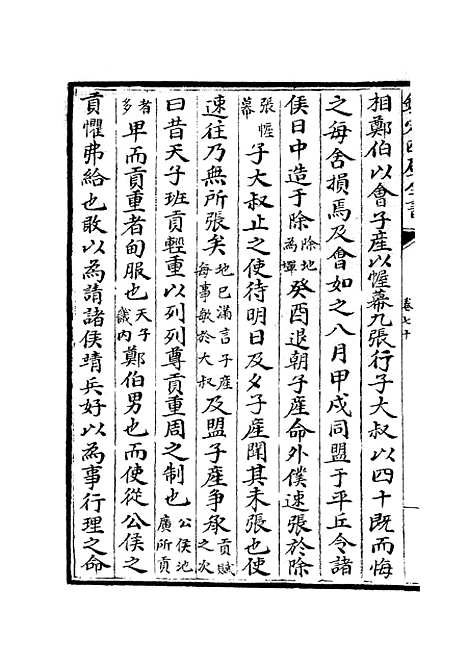 欽定四庫全書
卷七十
相鄭伯以會子産以幄幕九張行子大叔以四十既而悔
之每舍損焉及會如之八月甲戍同盟于平丘令諸
侯日中造于除除地為壇癸酉退朝子産命外僕速張於除
張幄幕子大叔止之使待明日及夕子産聞其未張也使
速往乃無所張矣地已滿言子産每事敏於大叔及盟子産爭承貢賦之次
曰昔天子班貢輕重以列列尊貢重周之制也公侯地廣所貢
者多卑而貢重者甸服也天子畿内鄭伯男也而使從公侯之
貢懼弗給也敢以為請諸侯靖兵好以為事行理之命